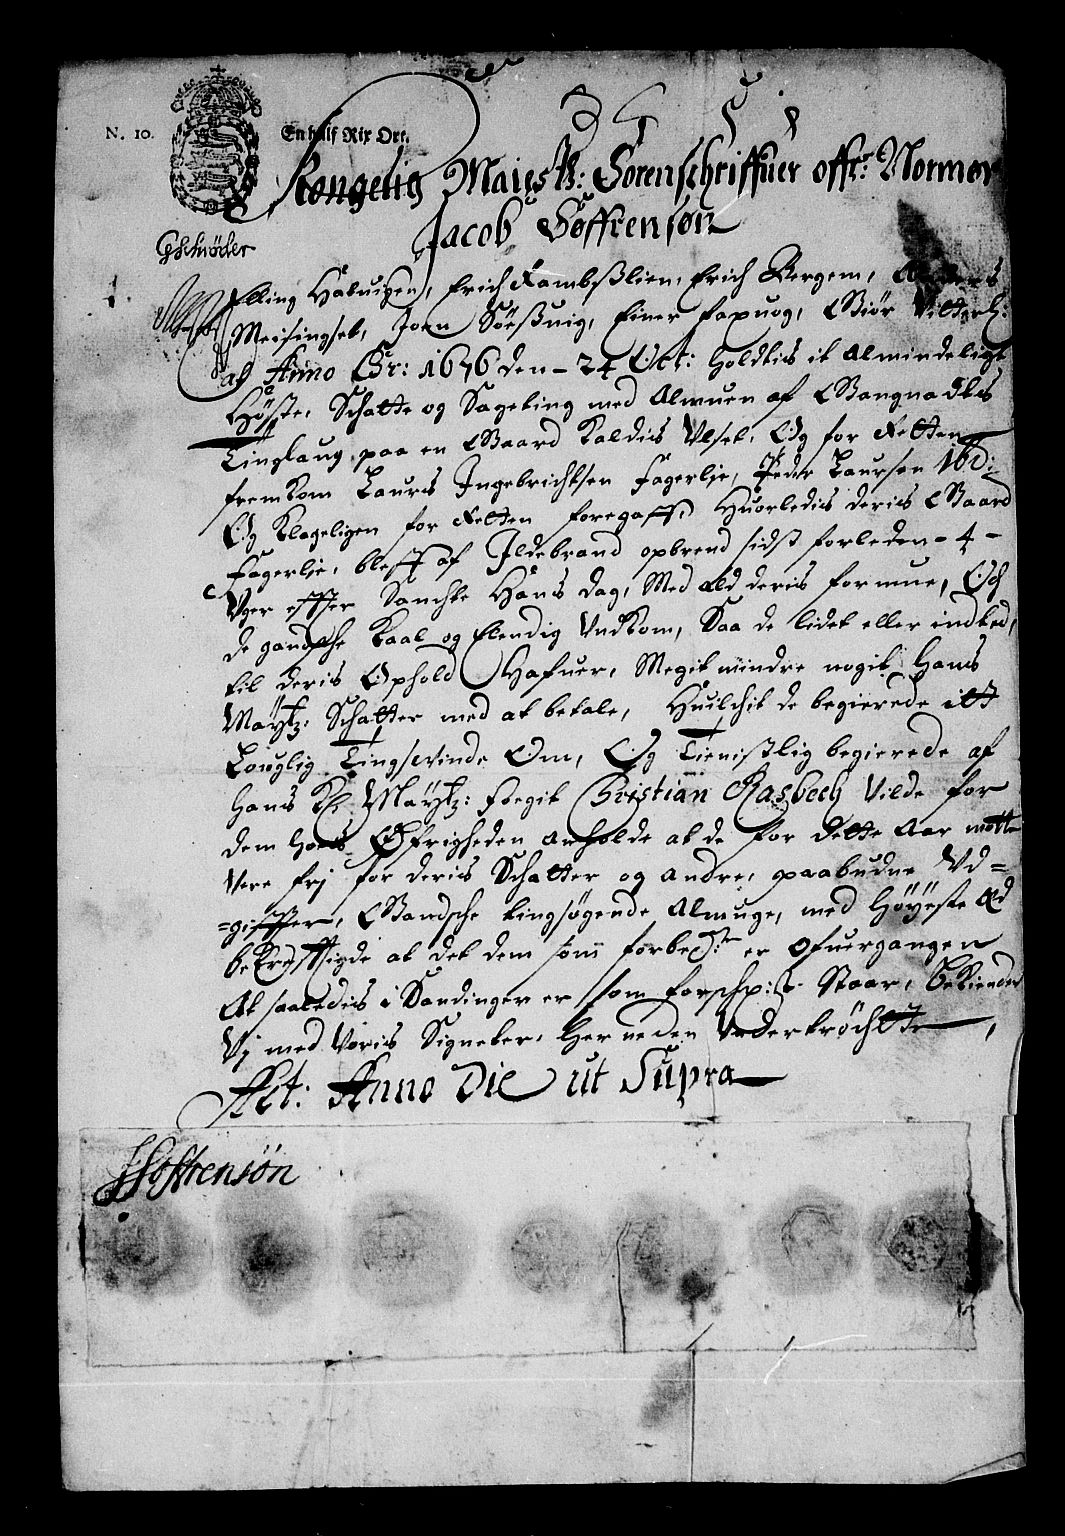 N. 10.
En half Rix Ort.
Kongelig Maiesth: Sorenschriffuer offr. Normør
Jacob Søffrensøn
GSchrøder
Elling Haluigen, Erich Rambsslien, Erich Bergem,
Meisingset, Joen Söessuig, Einer Faxuog, Giör
Att Anno Chr: 1676 den - 24 Oct: holdtis it Almindeligt
Høste, Schatte og Sageting med Almuen af Gangnadtis
Tinglaug paa en Gaard Kaldis Ulset, Og for Retten
fremkom Laurs Ingebrichtsen Fagerlie, Peder Laursen ibd:
Og Klageligen for Retten foregaff, Huorledis deris Gaard
Fagerlie, bleff af Ildebrand opbrend sidst forleden - 4 -
Uger effter Sanchte Hans dag, Med ald deris formue, Och
de gandsche Kaal og Elendig Undkom, Saa de lidet eller indted,
til deris Ophold Hafuer, Megit mindre nogit Hans
Maytz: Schatter med at betale, Huilchit de begierede itt
Louglig Tingswinde Om, Og Tienistlig begierede af
Hans Kl. Maytz: Foegit Christian Rasbech Vilde for
dem hoes Øfrigheden anholde at de for dette Aar motte
Vere frj for deris Schatter og andre, paabudne Ud=
=giffter, Gandsche tingsøgende Almuge, med Høyeste Æd
bekrefftigde at det dem som forbe.t er Ofuergangen
At saaledis i Sandinger er som forschr: Staar, Bekiender
Vj med Voris Signeter, Her neden Undertröchte,
Act: Anno Die ut Supra
JSøffrensøn